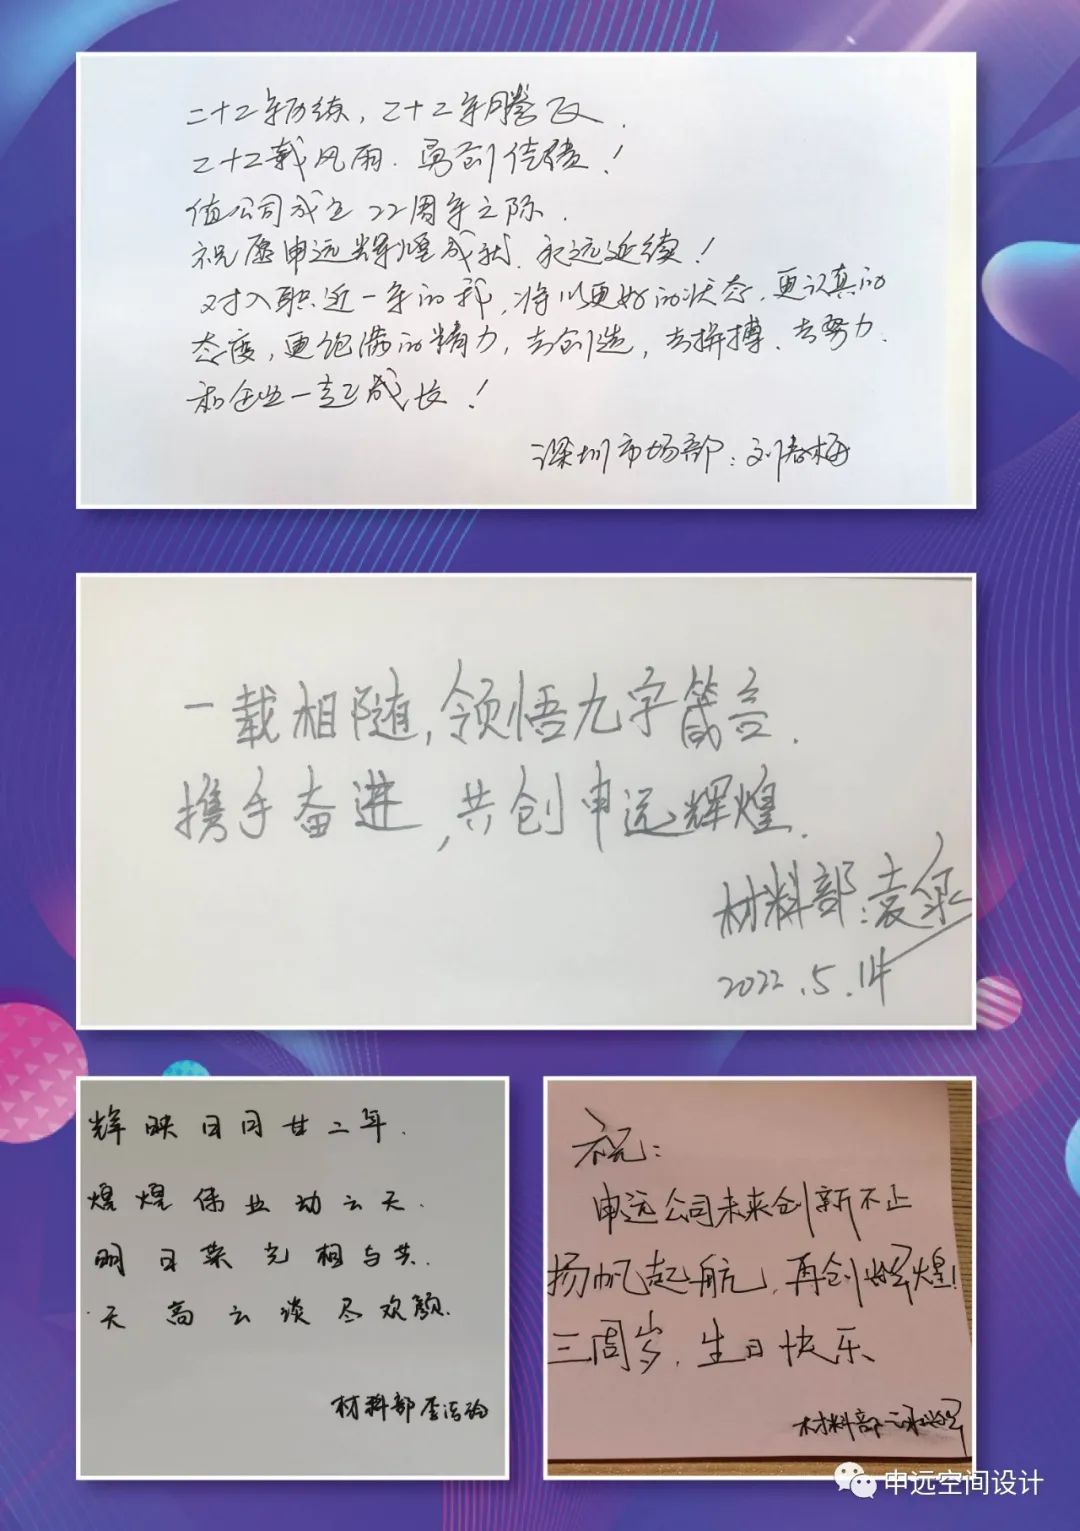 二十二年历练，二十二年腾飞.
二十二载风雨.勇创佳绩！
值公司成立22周年之际.
祝愿申远辉煌成就.永远延续！
对入职近一年的我，将以更好的状态.更认真的
态度，更饱满的精力，去创造，去拼搏、去努力.
和企业一起成长！
深圳市场部：刘春梅
一载相随，领悟九字箴言.
携手奋进，共创申远辉煌.
材料部：袁泉
2022.5.14
辉映日月廿二年.
煌煌伟业动云天.
明日荣光相与共.
天高云淡尽欢颜.
材料部李
祝：
申远公司未来创新不止
扬帆起航，再创辉煌！
三周岁，生日快乐
材料部
申远空间设计